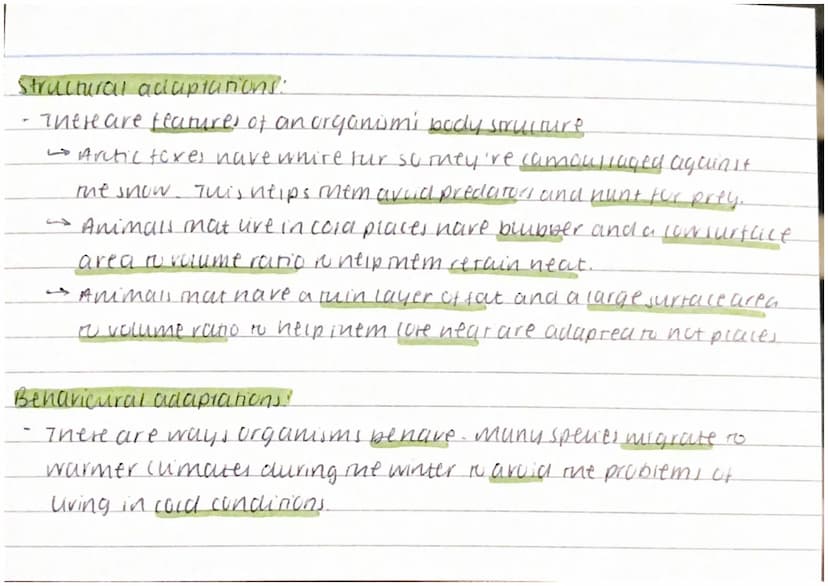 Structural adaptations:
- There are features of an organism's body structure
↳ Arctic foxes have white fur so they're camouflaged against
the snow. This helps them avoid predators and hunt for prey.
↳ Animals that live in cold places have blubber and a low surface
area to volume ratio to help them retain heat.
↳ Animals that have a thin layer of fat and a large surface area
to volume ratio to help them lose heat are adapted to hot places
Behavioural adaptations:
- There are ways organisms behave. Many species migrate to
warmer climates during the winter to avoid the problems of
living in cold conditions.